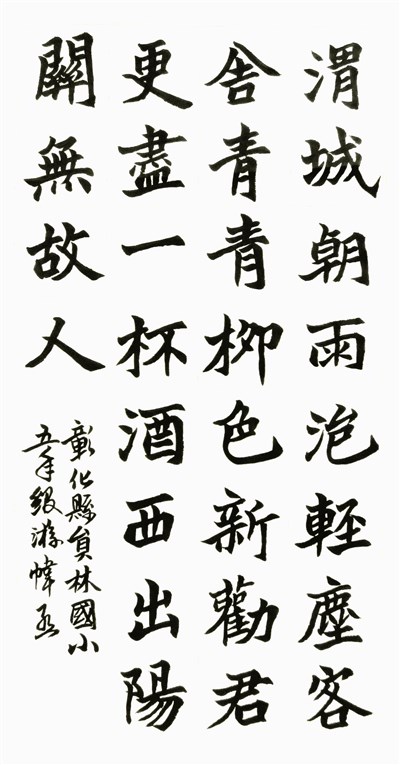 渭城朝雨浥輕塵客
舍青青柳色新勸君
更盡一杯酒西出陽
關無故人
彰化縣員林國小
五年級游幃丞